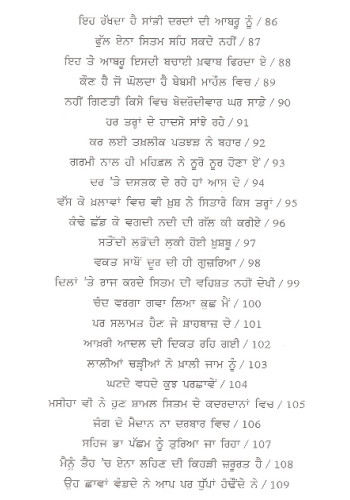 ਇਹ ਰੱਖਦਾ ਹੈ ਸਾਂਭੀ ਦਰਦਾਂ ਦੀ ਆਬਰੂ ਨੂੰ / 86
ਫੁੱਲ ਏਨਾ ਸਿਤਮ ਸਹਿ ਸਕਦੇ ਨਹੀਂ / 87
ਇਹ ਤੇ ਆਬਰੂ ਇਸਦੀ ਬਚਾਈ ਖ਼ਵਾਬ ਫਿਰਦਾ ਏ / 88
ਕੌਣ ਹੈ ਜੋ ਘੋਲਦਾ ਹੈ ਬੇਬਸੀ ਮਾਹੌਲ ਵਿਚ / 89
ਨਹੀਂ ਗਿਣਤੀ ਕਿਸੇ ਵਿਚ ਬੇਦਰੋਦੀਵਾਰ ਘਰ ਸਾਡੇ / 90
ਹਰ ਤਰ੍ਹਾਂ ਦੇ ਹਾਦਸੇ ਸਾਂਝੇ ਰਹੇ / 91
ਕਰ ਲਈ ਤਖ਼ਲੀਕ ਪਤਝੜ ਨੇ ਬਹਾਰ / 92
ਗਰਮੀ ਨਾਲ ਹੀ ਮਹਿਫ਼ਲ ਨੇ ਨੂਰੋ ਨੂਰ ਹੋਣਾ ਏਂ / 93
ਦਰ 'ਤੇ ਦਸਤਕ ਦੇ ਰਹੇ ਹਾਂ ਆਸ ਦੇ / 94
ਵੱਸ ਕੇ ਖ਼ਲਾਵਾਂ ਵਿਚ ਵੀ ਖ਼ੁਸ਼ ਨੇ ਸਿਤਾਰੇ ਕਿਸ ਤਰ੍ਹਾਂ / 95
ਕੰਢੇ ਛੱਡ ਕੇ ਵਗਦੀ ਨਦੀ ਦੀ ਗੱਲ ਕੀ ਕਰੀਏ / 96
ਸਤੌਂਦੀ ਲਭੌਂਦੀ ਲੁਕੀ ਹੋਈ ਖ਼ੁਸ਼ਬੂ / 97
ਵਕਤ ਸਾਥੋਂ ਦੂਰ ਦੀ ਹੀ ਗੁਜ਼ਰਿਆ / 98
ਦਿਲਾਂ 'ਤੇ ਰਾਜ ਕਰਦੇ ਸਿਤਮ ਦੀ ਵਹਿਸ਼ਤ ਨਹੀਂ ਦੇਖੀ / 99
ਚੰਦ ਵਰਗਾ ਗਵਾ ਲਿਆ ਕੁਛ ਮੈਂ / 100
ਪਰ ਸਲਾਮਤ ਹੈਣ ਜੇ ਸ਼ਾਹਬਾਜ਼ ਦੇ / 101
ਆਖ਼ਰੀ ਆਦਲ ਦੀ ਦਿਕਤ ਰਹਿ ਗਈ / 102
ਲਾਲੀਆਂ ਚੜ੍ਹੀਆਂ ਨੇ ਖ਼ਾਲੀ ਜਾਮ ਨੂੰ / 103
ਘਟਦੇ ਵਧਦੇ ਕੁਝ ਪਰਛਾਵੇਂ / 104
ਮਸੀਹਾ ਵੀ ਨੇ ਹੁਣ ਸ਼ਾਮਲ ਸਿਤਮ ਦੇ ਕਦਰਦਾਨਾਂ ਵਿਚ / 105
ਜੰਗ ਦੇ ਮੈਦਾਨ ਨਾ ਦਰਬਾਰ ਵਿਚ / 106
ਸਹਿਜ ਭਾ ਪੱਛਮ ਨੂੰ ਤੁਰਿਆ ਜਾ ਰਿਹਾ / 107
ਮੈਨੂੰ ਤੈਹ 'ਚ ਏਨਾ ਲਹਿਣ ਦੀ ਕਿਹੜੀ ਜ਼ਰੂਰਤ ਹੈ / 108
ਉਹ ਛਾਵਾਂ ਵੰਡਦੇ ਨੇ ਆਪ ਪਰ ਧੁੱਪਾਂ ਹੰਢੌਂਦੇ ਨੇ / 109